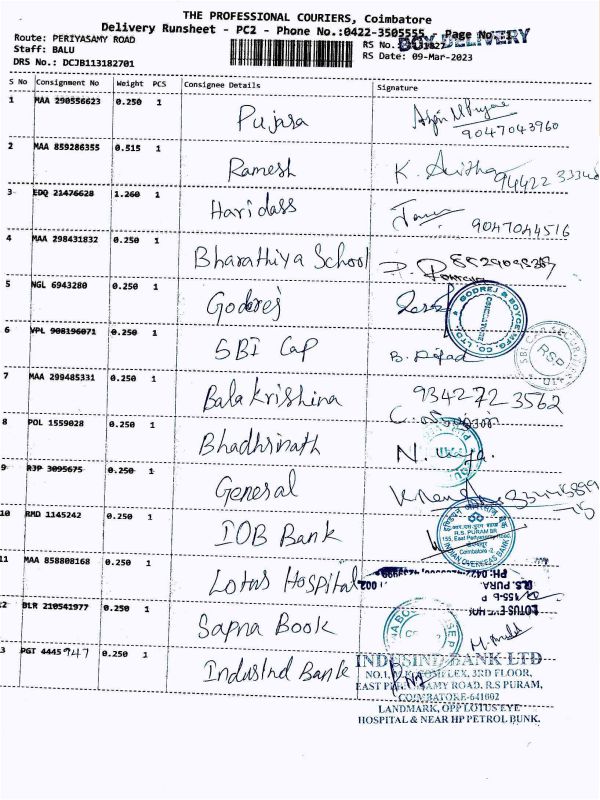 THE PROFESSIONAL COURIERS, Coimbatore
Delivery Runsheet - PC2 - Phone No.:0422-3505555 Page No.:
Route: PERIYASAMY ROAD
BOY DELIVERY
Staff: BALU
RS No.:
DRS No.: DCJB113182701
RS Date: 09-Mar-2023
S No Consignment No Weight PCS Consignee Details Signature
1 MAA 290556623 0.250 1 Pujara
9047043960
2 MAA 859286355 0.515 1 Ramesh K.
3 EDQ 21476628 1.260 1 Haridass
9047044516
4 MAA 298431832 0.250 1 Bharathiya School
5 NGL 6943280 0.250 1 Godrej
GODREJ & BOYCE MFG. CO. LTD.
6 VPL 908196071 0.250 1 SBI Cap B.
RSP
7 MAA 299485331 0.250 1 Balakrishna 934272 3562
8 POL 1559028 0.250 1 Bhadhrinath N.
9 RJP 3095675 0.250 1 General
10 RMD 1145242 0.250 1 IOB Bank
R.S. PURAM BR
155, East Periyasamy Road
Coimbatore -2.
INDIAN OVERSEAS BANK
11 MAA 858808168 0.250 1 Lotus Hospital
R.S. PURA
LOTUS EYE
12 BLR 210541977 0.250 1 Sapna Book
13 PGT 4445947 0.250 1 IndusInd Bank
INDUSIND BANK LTD
NO.1, COMPLEX, 3RD FLOOR,
EAST PERIYASAMY ROAD, R.S PURAM,
COIMBATORE-641002
LANDMARK, OPP LOTUS EYE
HOSPITAL & NEAR HP PETROL BUNK.